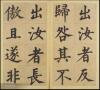 出汝者不
歸咎其不
出汝者長
傲且遂非